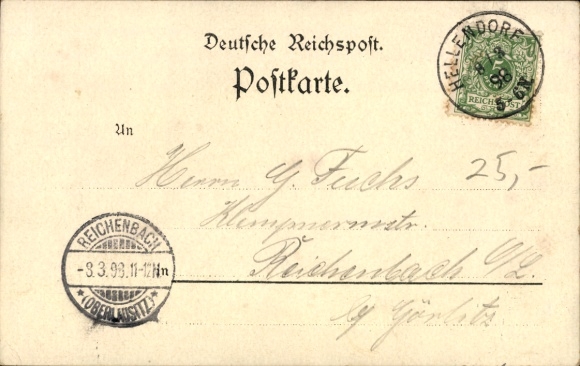 Deutsche Reichspost.
Postkarte.
HELLENDORF
98
5-6N
5
REICHSPOST
An
Herrn G. Fuchs
25,-
Klempnermstr.
Reichenbach O/L.
b/ Görlitz
REICHENBACH
-8.3.98.11-12N
* (OBERLAUSITZ) *
in